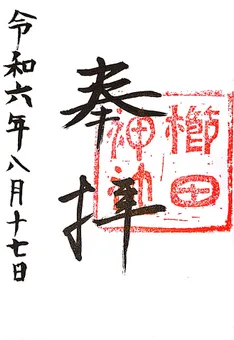 奉拝
櫛田
神社
令和六年八月十七日